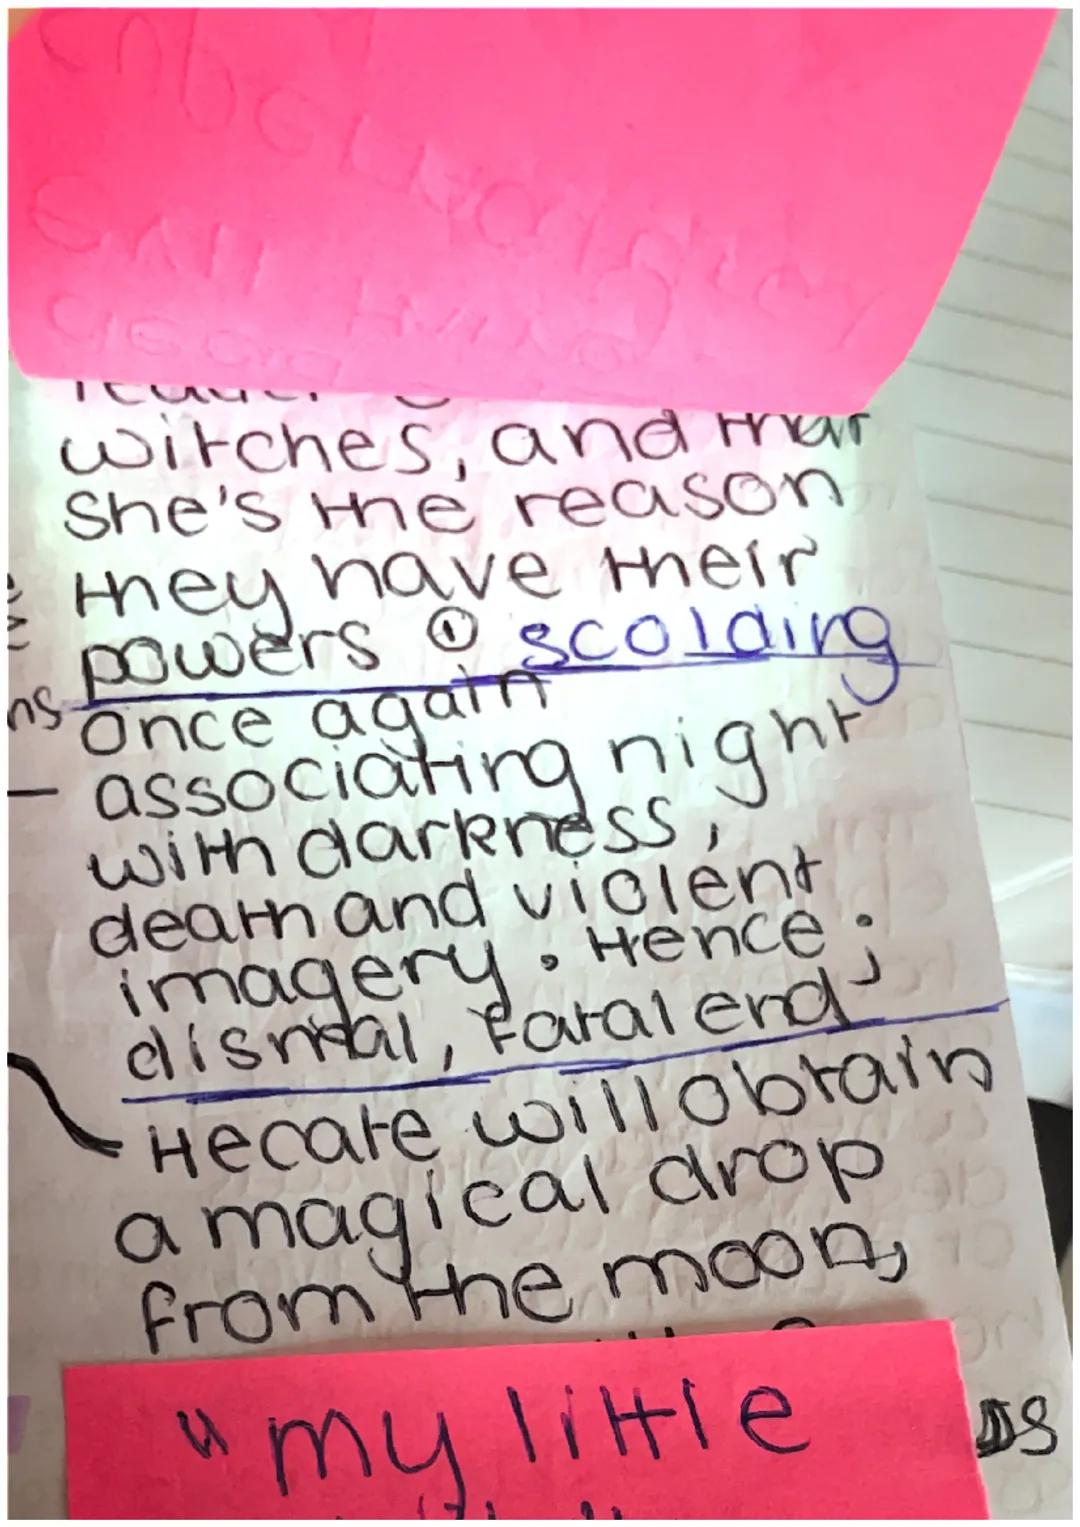 witches, and that
she's the reason
they have their
powers ① scolding
ns once again
associating night
with darkness,
death and violent
imagery. Hence;
dismal, fatal end
Hecate will obtain
a magical drop
from the moon,
"my little